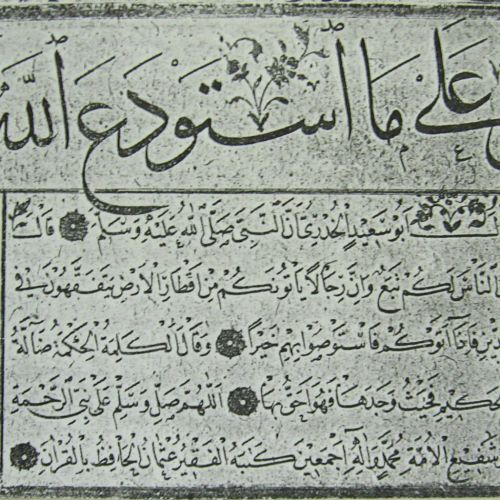 على ما استودع الله
أبو سعيد الخدري أن النبي صلى الله عليه وسلم قال
الناس لكم تبع وإن رجالا يأتونكم من أقطار الأرض يتفقهون في
الدين فإذا أتوكم فاستوصوا بهم خيرا وقال الكلمة الحكمة ضالة
فحيث وجدها فهو أحق بها اللهم صل وسلم على نبي الرحمة
شفيع الأمة محمد وآله أجمعين كتبه الفقير عثمان الحافظ بالقرآن